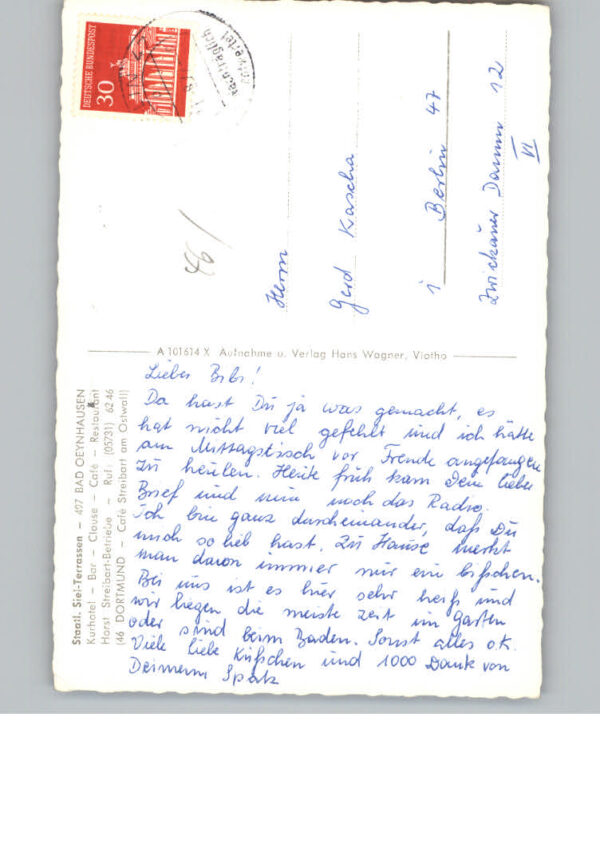 DEUTSCHE BUNDESPOST
30
nachträglich
entwertet
46/
Herrn
Gerd Kascha
1 Berlin 47
Zwickauer Damm 12
VI
A 101614 X Aufnahme u. Verlag Hans Wagner, Vlotho
Staatl. Siel-Terrassen – 497 BAD OEYNHAUSEN
Kurhotel – Bar – Clause – Café – Restaurant
Horst Streibart-Betriebe – Ruf: (05731) 62 46
(46 DORTMUND – Café Streibart am Ostwall)
Lieber Bibi!
Da hast Du ja was gemacht, es
hat nicht viel gefehlt und ich hätte
am Mittagstisch vor Freude angefangen
zu heulen. Heute früh kam Dein lieber
Brief und nun noch das Radio.
Ich bin ganz durcheinander, daß Du
mich so lieb hast. Zu Hause merkt
man davon immer nur ein bißchen.
Bei uns ist es hier sehr heiß und
wir liegen die meiste Zeit im Garten
oder sind beim Baden. Sonst alles o.k.
Viele liebe Küßchen und 1000 Dank von
Deinem Spatz